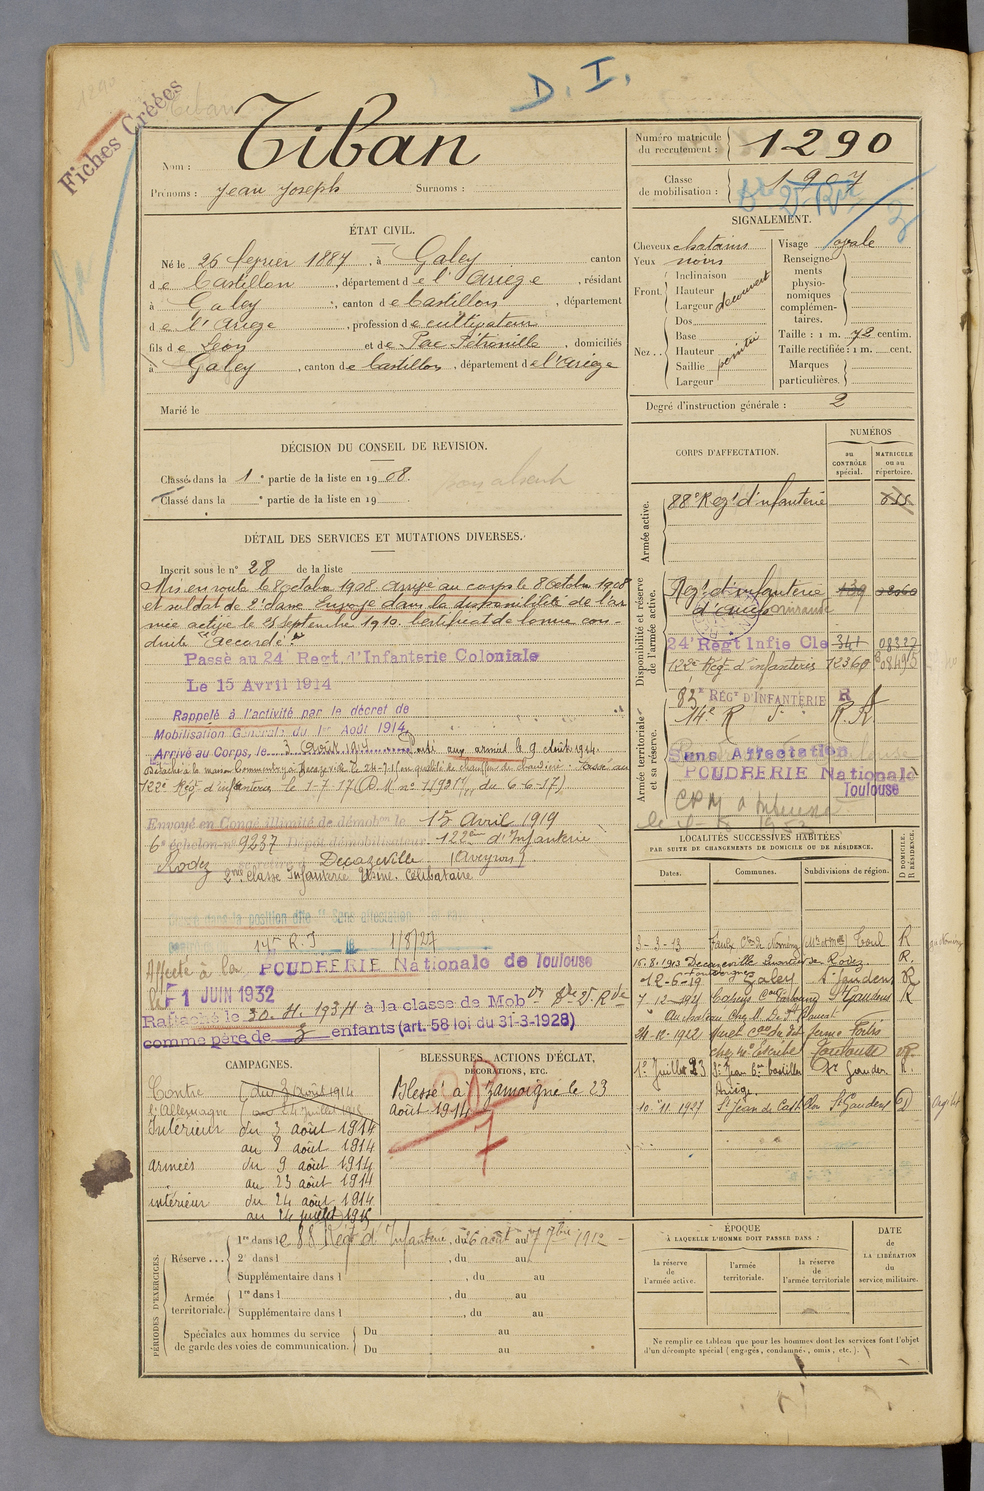 D. I.
Fiches Créées
1290
Tiban
Nom : Tiban
Prénoms : Jean Joseph Surnoms :
Numéro matricule du recrutement : 1290
Classe de mobilisation : 1907
ÉTAT CIVIL.
Né le 26 février 1887, à Galey canton
de Castillon, département de l'Ariège, résidant
à Galey, canton de Castillon, département
de l'Ariège, profession de cultivateur
fils de Léon et de Pac Pétronille, domiciliés
à Galey, canton de Castillon, département de l'Ariège
Marié le
SIGNALEMENT.
Cheveux chatains
Yeux noirs
Front. Inclinaison
Hauteur
Largeur découvert
Nez... Dos
Base
Hauteur
Saillie pointu
Largeur
Visage ovale
Renseignements physionomiques complémentaires.
Taille : 1 m. 72 centim.
Taille rectifiée : 1 m. cent.
Marques particulières.
Degré d'instruction générale : 2
DÉCISION DU CONSEIL DE REVISION.
Classé dans la 1e partie de la liste en 1908.
Classé dans la e partie de la liste en 19
DÉTAIL DES SERVICES ET MUTATIONS DIVERSES.
Inscrit sous le n° 28 de la liste
Mis en route le 8 octobre 1908. Arrivé au corps le 8 octobre 1908
et soldat de 2e classe. Envoyé dans la disponibilité de l'ar
mée active le 25 septembre 1910. Certificat de bonne con-
duite "Accordé"
Passé au 24e Regt. d'Infanterie Coloniale
Le 15 Avril 1914
Rappelé à l'activité par le décret de
Mobilisation Générale du 1er Août 1914
Arrivé au Corps, le 3 Août 1914 aux armées le 9 Août 1914.
Détaché à la maison Commentry à Decazeville le 24-7-15 en qualité de chauffeur de chaudière. Passé au
122e Régt d'infanterie le 1-7-17 (D. M. n° du 6-6-17)
Envoyé en Congé illimité de démobon le 15 Avril 1919
6e échelon n° 9237 Dépôt démobilisateur 122e d'Infanterie
Rodez se retire à Decazeville (Aveyron)
2me classe Infanterie Usine. Célibataire
Classé dans la position dite "Sans affectation"
14e R.I le 1/8/27
Affecté à la POUDRERIE Nationale de Toulouse
le 1 JUIN 1932
Rattaché le 30. 4. 1934 à la classe de Mobon
comme père de 3 enfants (art. 58 loi du 31-3-1928)
CORPS D'AFFECTATION.
NUMÉROS
au CONTRÔLE spécial.
MATRICULE ou au répertoire.
Armée active.
88e Régt d'infanterie
Disponibilité et réserve de l'armée active.
Régt d'infanterie 139
24e Régt Infie Cle 341 08327
122e Régt d'infanterie 12360
Armée territoriale et sa réserve.
83e RÉGt D'INFANTERIE R
14e R
Sans Affectation
POUDRERIE Nationale
Toulouse
LOCALITÉS SUCCESSIVES HABITÉES
PAR SUITE DE CHANGEMENTS DE DOMICILE OU DE RÉSIDENCE.
Dates. Communes. Subdivisions de région. D DOMICILE. R RÉSIDENCE.
3-3-13 Toul R
16.8.1913 Decazeville Rodez R.
12-6-19 Galey St Gaudens R
7-12-1921 St Gaudens R
24-12-1922 Muret
Toulouse
1er Juillet 23 St Jean Con Castillon St Gaudens R.
Ariège.
10.11.1927 St Jean de Castillon St Gaudens D
CAMPAGNES.
Contre l'Allemagne
du 3 août 1914
au 24 juillet 1915
Intérieur du 3 août 1914
au 8 août 1914
armées du 9 août 1914
au 23 août 1914
intérieur du 24 août 1914
au 24 juillet 1915
BLESSURES, ACTIONS D'ÉCLAT, DÉCORATIONS, ETC.
Blessé à Jamoigne le 23
août 1914
PÉRIODES D'EXERCICES.
Réserve...
1re dans le 88 Régt d'Infanterie, du 16 août au 7 7bre 1912
2e dans l , du au
Supplémentaire dans l , du au
Armée territoriale.
1re dans l , du au
Supplémentaire dans l , du au
Spéciales aux hommes du service de garde des voies de communication.
Du au
Du au
ÉPOQUE
À LAQUELLE L'HOMME DOIT PASSER DANS :
la réserve de l'armée active.
l'armée territoriale.
la réserve de l'armée territoriale
DATE de LA LIBÉRATION du service militaire.
Ne remplir ce tableau que pour les hommes dont les services font l'objet
d'un décompte spécial (engagés, condamnés, omis, etc.).